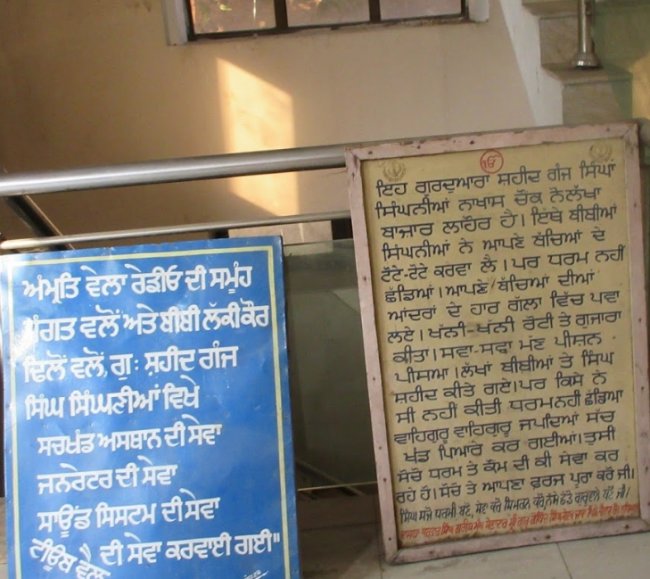 ਅੰਮ੍ਰਤਿ ਵੇਲਾ ਰੇਡੀਓ ਦੀ ਸਮੂੰਹ
ਸੰਗਤ ਵਲੋਂ ਅਤੇ ਬੀਬੀ ਲੱਕੀ ਕੌਰ
ਢਿਲੋਂ ਵਲੋਂ, ਗੁਃ ਸ਼ਹੀਦ ਗੰਜ
ਸਿੰਘ ਸਿੰਘਣੀਆਂ ਵਿਖੇ
ਸਚਖੰਡ ਅਸਥਾਨ ਦੀ ਸੇਵਾ
ਜਨਰੇਟਰ ਦੀ ਸੇਵਾ
ਸਾਊਂਡ ਸਿਸਟਮ ਦੀ ਸੇਵਾ
ਟੀਊਬ ਵੈਲ ਦੀ ਸੇਵਾ ਕਰਵਾਈ ਗਈ"
ੴ
ਇਹ ਗੁਰਦੁਆਰਾ ਸ਼ਹੀਦ ਗੰਜ ਸਿੰਘਾਂ
ਸਿੰਘਨੀਆਂ ਨਾਖਾਸ ਚੌਕ ਨੌਲੱਖਾ
ਬਾਜਾਰ ਲਾਹੌਰ ਹੈ। ਇੱਥੇ ਬੀਬੀਆਂ
ਸਿੰਘਣੀਆਂ ਨੇ ਆਪਣੇ ਬੱਚਿਆਂ ਦੇ
ਟੋਟੇ-ਟੋਟੇ ਕਰਵਾ ਲੈ। ਪਰ ਧਰਮ ਨਹੀਂ
ਛੱਡਿਆਂ। ਆਪਣੇ ਬੱਚਿਆਂ ਦੀਆਂ
ਆਂਦਰਾਂ ਦੇ ਹਾਰ ਗੱਲਾ ਵਿੱਚ ਪਵਾ
ਲਏ। ਖੱਨੀ-ਖੱਨੀ ਰੋਟੀ ਤੇ ਗੁਜਾਰਾ
ਕੀਤਾ। ਸਵਾ-ਸਵਾ ਮੰਣ ਪੀਸ਼ਨ
ਪੀਸਆ। ਲੱਖਾਂ ਬੀਬੀਆਂ ਤੇ ਸਿੰਘ
ਸ਼ਹੀਦ ਕੀਤੇ ਗਏ। ਪਰ ਕਿਸੇ ਨੇ
ਸੀ ਨਹੀਂ ਕੀਤੀ ਧਰਮ ਨਹੀਂ ਛੱਡਿਆ
ਵਾਹਿਗੁਰੂ ਵਾਹਿਗੁਰੂ ਜਪਦਿਆਂ ਸੱਚ
ਖੰਡ ਪਿਆਰੇ ਕਰ ਗਈਆਂ। ਤੁਸੀ
ਸੱਚੋ ਧਰਮ ਤੇ ਕੌਮ ਦੀ ਕੀ ਸੇਵਾ ਕਰ
ਰਹੇ ਹੋ। ਸੋਚੋ ਤੇ ਆਪਣਾ ਫਰਜ ਪੂਰਾ ਕਰੋ ਜੀ।
ਸਿੰਘ ਸਜੋ ਧਰਮੀ ਬਣੋ, ਸੇਵਾ ਕਰੋ ਸਿਮਰਨ ਕਰੋ, ਨਸ਼ੇ ਛੱਡੋ ਗੁਰੂਵਾਲੇ ਬਣੋ ਜੀ।